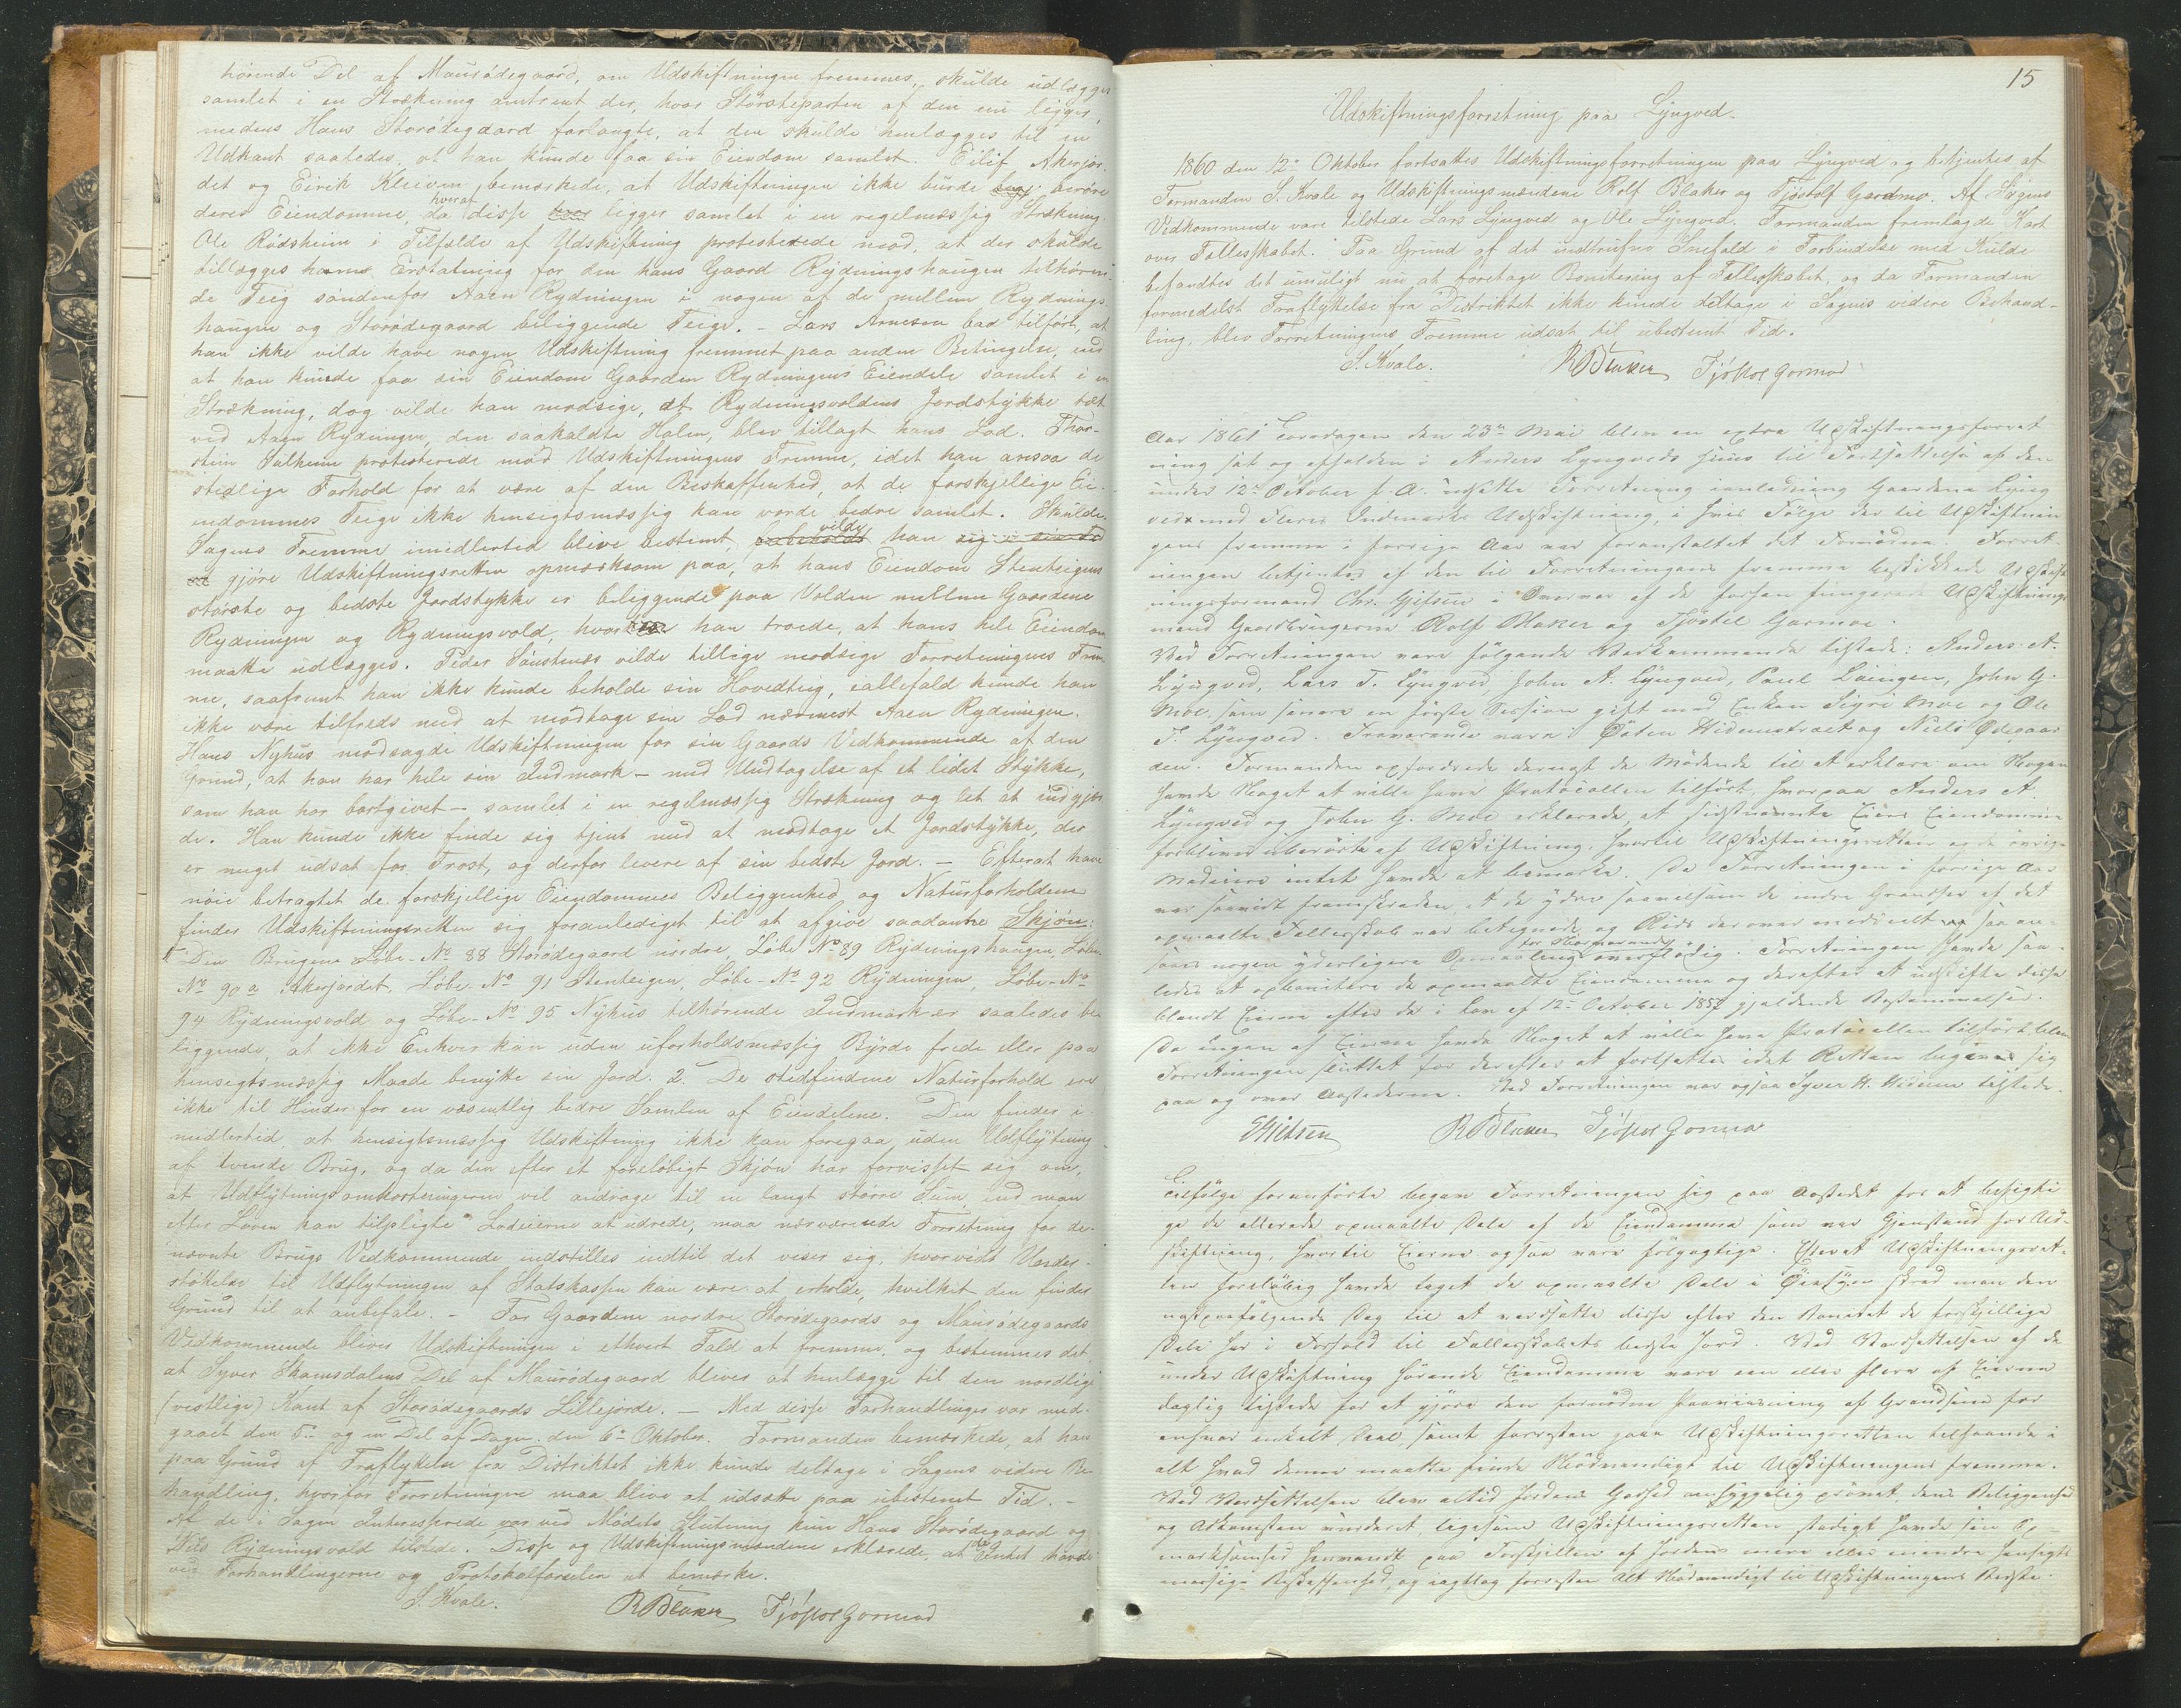 hörende Del af Maurödegaard, om Udskiftningen fremmes, skulde udlægges
samlet i en Strækning omtrent der, hvor Störsteparten af den nu ligger,
medens Hans Storödegaard forlangte, at den skulde henlægges til en
Udkant saaledes, at han kunde faa sin Eiendom samlet. Eilif Akerjor-
det og Eirik Kleiven bemærkede, at Udskiftningen ikke burde beröre
deres Eiendomme, da hvorat disse ligger samlet i en regelmæssig Strækning.
Ole Rödsheim i Tilfælde af Udskiftning protesterede mod, at der skulde
tillægges ham Erstatning for den hans Gaard Rydningshaugen tilhören-
de Teig söndenfor Aaen Rydningen i nogen af de mellem Rydnings-
haugen og Storödegaard beliggende Teige. - Lars Arnesen bad tilfört, at
han ikke vilde have nogen Udskiftning fremmet paa anden Betingelse, end
at han kunde faa sin Eiendom Gaarden Rydningens Eiendele samlet i en
Strækning, dog vilde han modsige, at Rydningsvoldens Jordstykke tæt
ved Aaen Rydningen, den saakaldte Holen, blev tillagt hans Lod. Thor-
stein Sulheim protesterede mod Udskiftningens Fremme, idet han ansaa de
stedlige Forhold for at være af den Beskaffenhed, at de forskjellige Ei-
endommes Teige ikke hensigtsmæssig kan vorde bedre samlet. Skulde
Sagens Fremme imidlertid blive bestemt, forbeholdt vilde han sig i sin Tid
at gjöre Udskiftningsretten opmærksom paa, at hans Eiendom Stenteigens
störste og bedste Jordstykke er beliggende paa Volden mellem Gaardene
Rydningen og Rydningsvold, hvor han troede, at hans hele Eiendom
maatte udlægges. Peder Sönstenæs vilde tillige modsige Forretningens Frem-
me, saafremt han ikke kunde beholde sin Hovedteig, iallefald kunde han
ikke være tilfreds med at modtage sin Lod nærmest Aaen Rydningen.
Hans Nyhus modsagde Udskiftningen for sin Gaards Vedkommende af den
Grund, at han har hele sin Indmark - med Undtagelse af et lidet Stykke,
som han har bortgivet - samlet i en regelmæssig Strækning og let at indgjer
de. Han kunde ikke finde sig tjent med at modtage et Jordstykke, der
er meget udsat for Frost, og derfor levere af sin bedste Jord. - Efterat have
nöie betragtet de forskjellige Eiendommes Beliggenhed og Naturforholdene
finder Udskiftningsretten sig foranlediget til at afgive saadanne Skjön:
1 Den Brugene Löbe-No 88 Storödegaard nordre, Löbe No 89 Rydningshaugen, Löbe
No 90a Akerjordet, Löbe-No 91 Stenteigen, Löbe-No 92 Rydningen, Löbe-No
94 Rydningsvold og Löbe-No 95 Nyhus tilhörende Indmark er saaledes be-
liggende, at ikke Enhver kan uden uforholdsmæssig Byrde frede eller paa
hensigtsmæssig Maade benytte sin Jord. 2. De stedfindene Naturforhold ere
ikke til Hinder for en væsentlig bedre Samlen af Eiendelene. Den finder i-
midlertid, at hensigtsmæssig Udskiftning ikke kan foregaa uden Udflytning
af tvende Brug, og da den efter et foreløbigt Skjön har forvisset sig om,
at Udflytningsomkostningerne vil andrage til en langt större Sum end man
efter Loven kan tilpligte Lodeierne at udrede, maa nærværende Forretning for de-
nævnte Brugs Vedkommende indstilles indtil det viser sig, hvorvidt Under-
støttelse til Udflytningen af Statskassen kan være at erholde, hvilket den finder
Grund til at anbefale. - For Gaardene nordre Storödegaards og Maurödegaards
Vedkommende bliver Udskiftningen i ethvert Fald at fremme, og bestemmes det
at Syver Skamsdalens Del af Maurödegaard bliver at henlægge til den nordlige
(vestlige) Kant af Storödegaards Lillejorde. - Med disse Forhandlinger var med-
gaaet den 5te og en Del af Dagen den 6te Oktober. Formanden bemærkede, at han
paa Grund af Fraflyttelse fra Distriktet ikke kunde deltage i Sagens videre Be-
handling, hvorfor Forretningen maa blive at udsætte paa ubestemt Tid. -
Af de i Sagen Interesserede var ved Mödets Slutning kun Hans Storödegaard og
Nils Rydningsvold tilstede. Disse og Udskiftningsmændene erklærede, at de Intet havde
ved Forhandlingerne og Protokolforselen at bemærke.
S. Kvale. RBlaker Tjöstol Gormod
15
Udskiftningsforretning paa Lyngved.
1860 den 12te Oktober fortsattes Udskiftningsforretningen paa Lyngved og betjentes af
Formanden S. Kvale og Udskiftningsmændene Rolf Blaker og Tjöstolf Gardmo. Af Sagens
Vedkommende vare tilstede Lars Lyngved og Ole Lyngved. Formanden fremlagde Kart
over Fællesskabet. Paa Grund af det indtrufne Snefald i Forbindelse med Kulde
befandtes det umuligt nu at foretage Bonitering af Fællesskabet, og da Formanden
formedelst Fraflyttelse fra Distriktet ikke kunde deltage i Sagens videre Behand-
ling, blev Forretningens Fremme udsat til ubestemt Tid.
S. Kvale. RBlaker Tjöstol Gormod
Aar 1861 Torsdagen den 23de Mai blev en extra Udskiftningsforret
ning sat og afholden i Anders Lyngveds Huus til Fortsættelse af den
under 12te October f. A. udsatte Forretning i anledning Gaardene Lyng
ved med Fleres Indmarks Udskiftning, i hvis Følge der til Udskiftnin
gens fremme i forrige Aar var foranstaltet det Fornødne. Forret-
ningen betjentes af den til Forretningens fremme beskikkede Udskift
ningsformand Chr. Gjetsen i Overvær af de forhen fungerede Udskiftnings
mænd Gaardbrugerne Rolf Blaker og Tjöstel Garmoe.
Ved Forretningen vare følgende Vedkommende tilstede: Anders A.
Lyngved, Lars T. Lyngved, John A. Lyngved, Poul Löingen, John G.
Moe, som senere en første Session gift med Enken Sigri Moe og Ole
T. Lyngved. Fraværende vare: Østen Widemstræt og Niels Ødegaar
den. Formanden opfordrede dernæst de Mødende til at erklære om Nogen
havde Noget at ville have Protocollen tilført, hvorpaa Anders A.
Lyngved og John G. Moe erklærede, at sidstnævnte Eiers Eiendomme
forbliver uberørte af Udskiftning, hvortil Udskiftningsretten og de øvrige
Medeiere intet havde at bemærke. Da Forretningen i forrige Aar
var saavidt fremskreden, at de ydre saavelsom de indre Grændser af det
opmaalte Fællesskab var betegnede og Rids derover meddeelt saa an-
saaes nogen yderligere Opmaaling for Nærværende overflødig. Forretningen havde saa-
ledes at opbonitere de opmaalte Eiendomme og derefter at udskifte disse
blandt Eierne efter de i Lov af 12te October 1857 gjældende Bestemmelser.
Da ingen af Eierne havde Noget at ville have Protocollen tilført blev
Forretningen sluttet for derefter at fortsættes idet Retten begiver sig
paa og over Aastederne. Ved Forretningen var ogsaa Syver H. Widem tilstede.
CGjetsen RBlaker Tjöstol Gormo
Tilfølge foranførte begav Forretningen sig paa Aastedet for at besigti
ge de allerede opmaalte Dele af de Eiendomme som var Gjenstand for Ud-
skiftning, hvortil Eierne ogsaa vare følgagtige. Efterat Udskiftningsret-
ten foreløbig havde taget de opmaalte Dele i Øiesyn skred man den
næstpaafølgende Dag til at værdsætte disse efter den Bonitet de forskjellige
Dele har i Forhold til Fællesskabets bedste Jord. Ved Værdsættelsen af de
under Udskiftning hørende Eiendomme vare een eller flere af Eierne
daglig tilstede for at gjøre den fornødne Paaviisning af Grændserne for
enhver enkelt Deel, samt forresten gaae Udskiftningsretten tilhaande i
alt hvad denne maatte finde Nødvendigt til Udskiftningens fremme.
Ved Værdsættelsen blev altid Jordens Godhed omhyggelig prøvet, dens Beliggenhed
og Adkomsten vurderet, ligesom Udskiftningsretten stadigt havde sin Op-
mærksomhed henvendt paa Forskjellen af Jordens mere eller mindre hensigts
mæssige Beskaffenhed, og iagttog forresten Alt Nødvendigt til Udskiftningens Bedste.